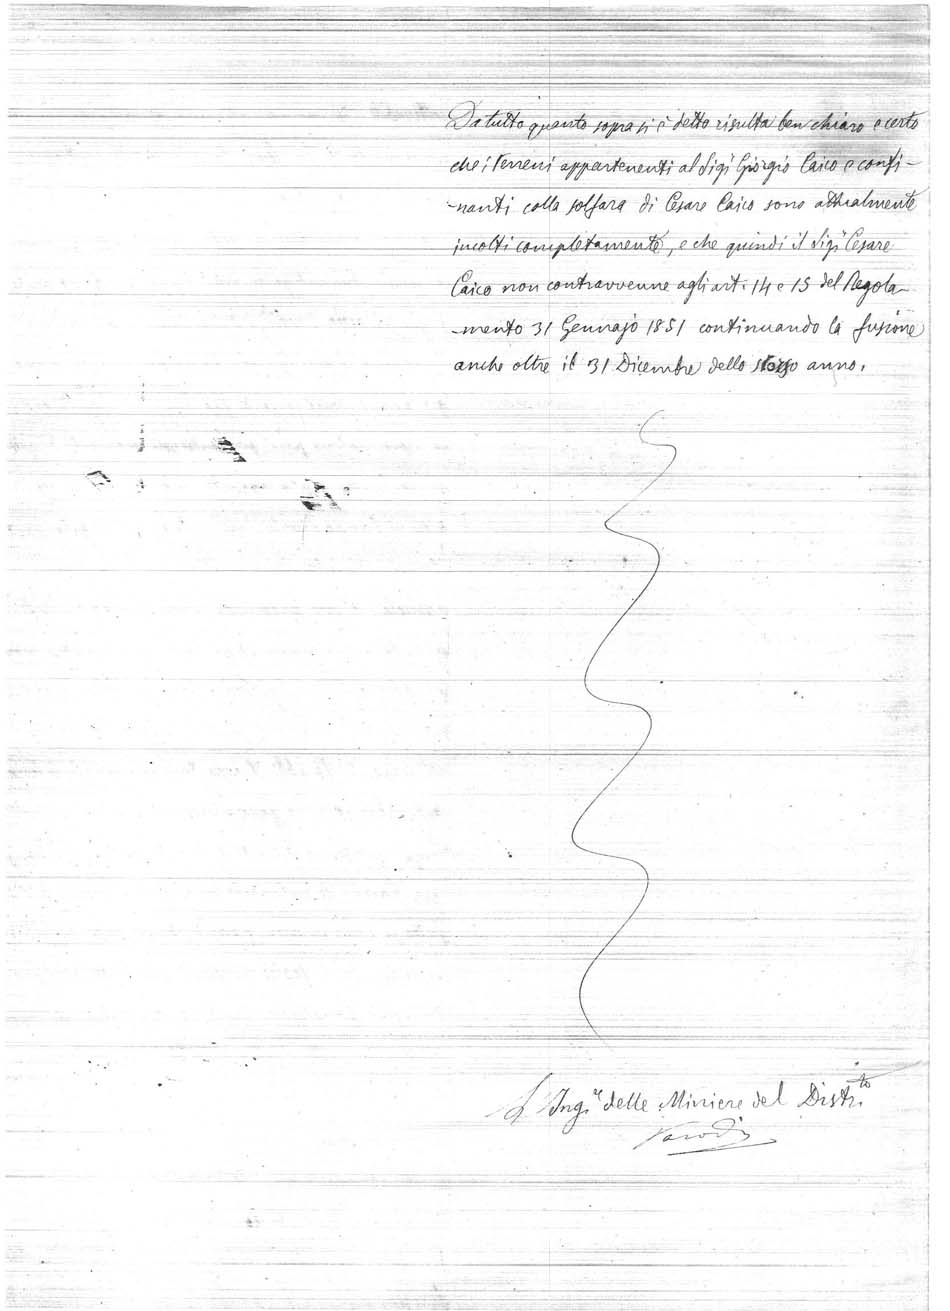 Da tutto quanto sopra si è detto risulta ben chiaro e certo
che i terreni appartenenti al Sigʳ Giorgio Caico e confi-
-nanti colla solfara di Cesare Caico sono attualmente
incolti completamente, e che quindi il Sigʳ Cesare
Caico non contravvenne agli art. 14 e 15 del Regola-
-mento 31 Gennajo 1851 continuando la fusione
anche oltre il 31 Dicembre dello stesso anno.
L'Ingʳᵉ delle Miniere del Distrᵗᵒ
Parodi